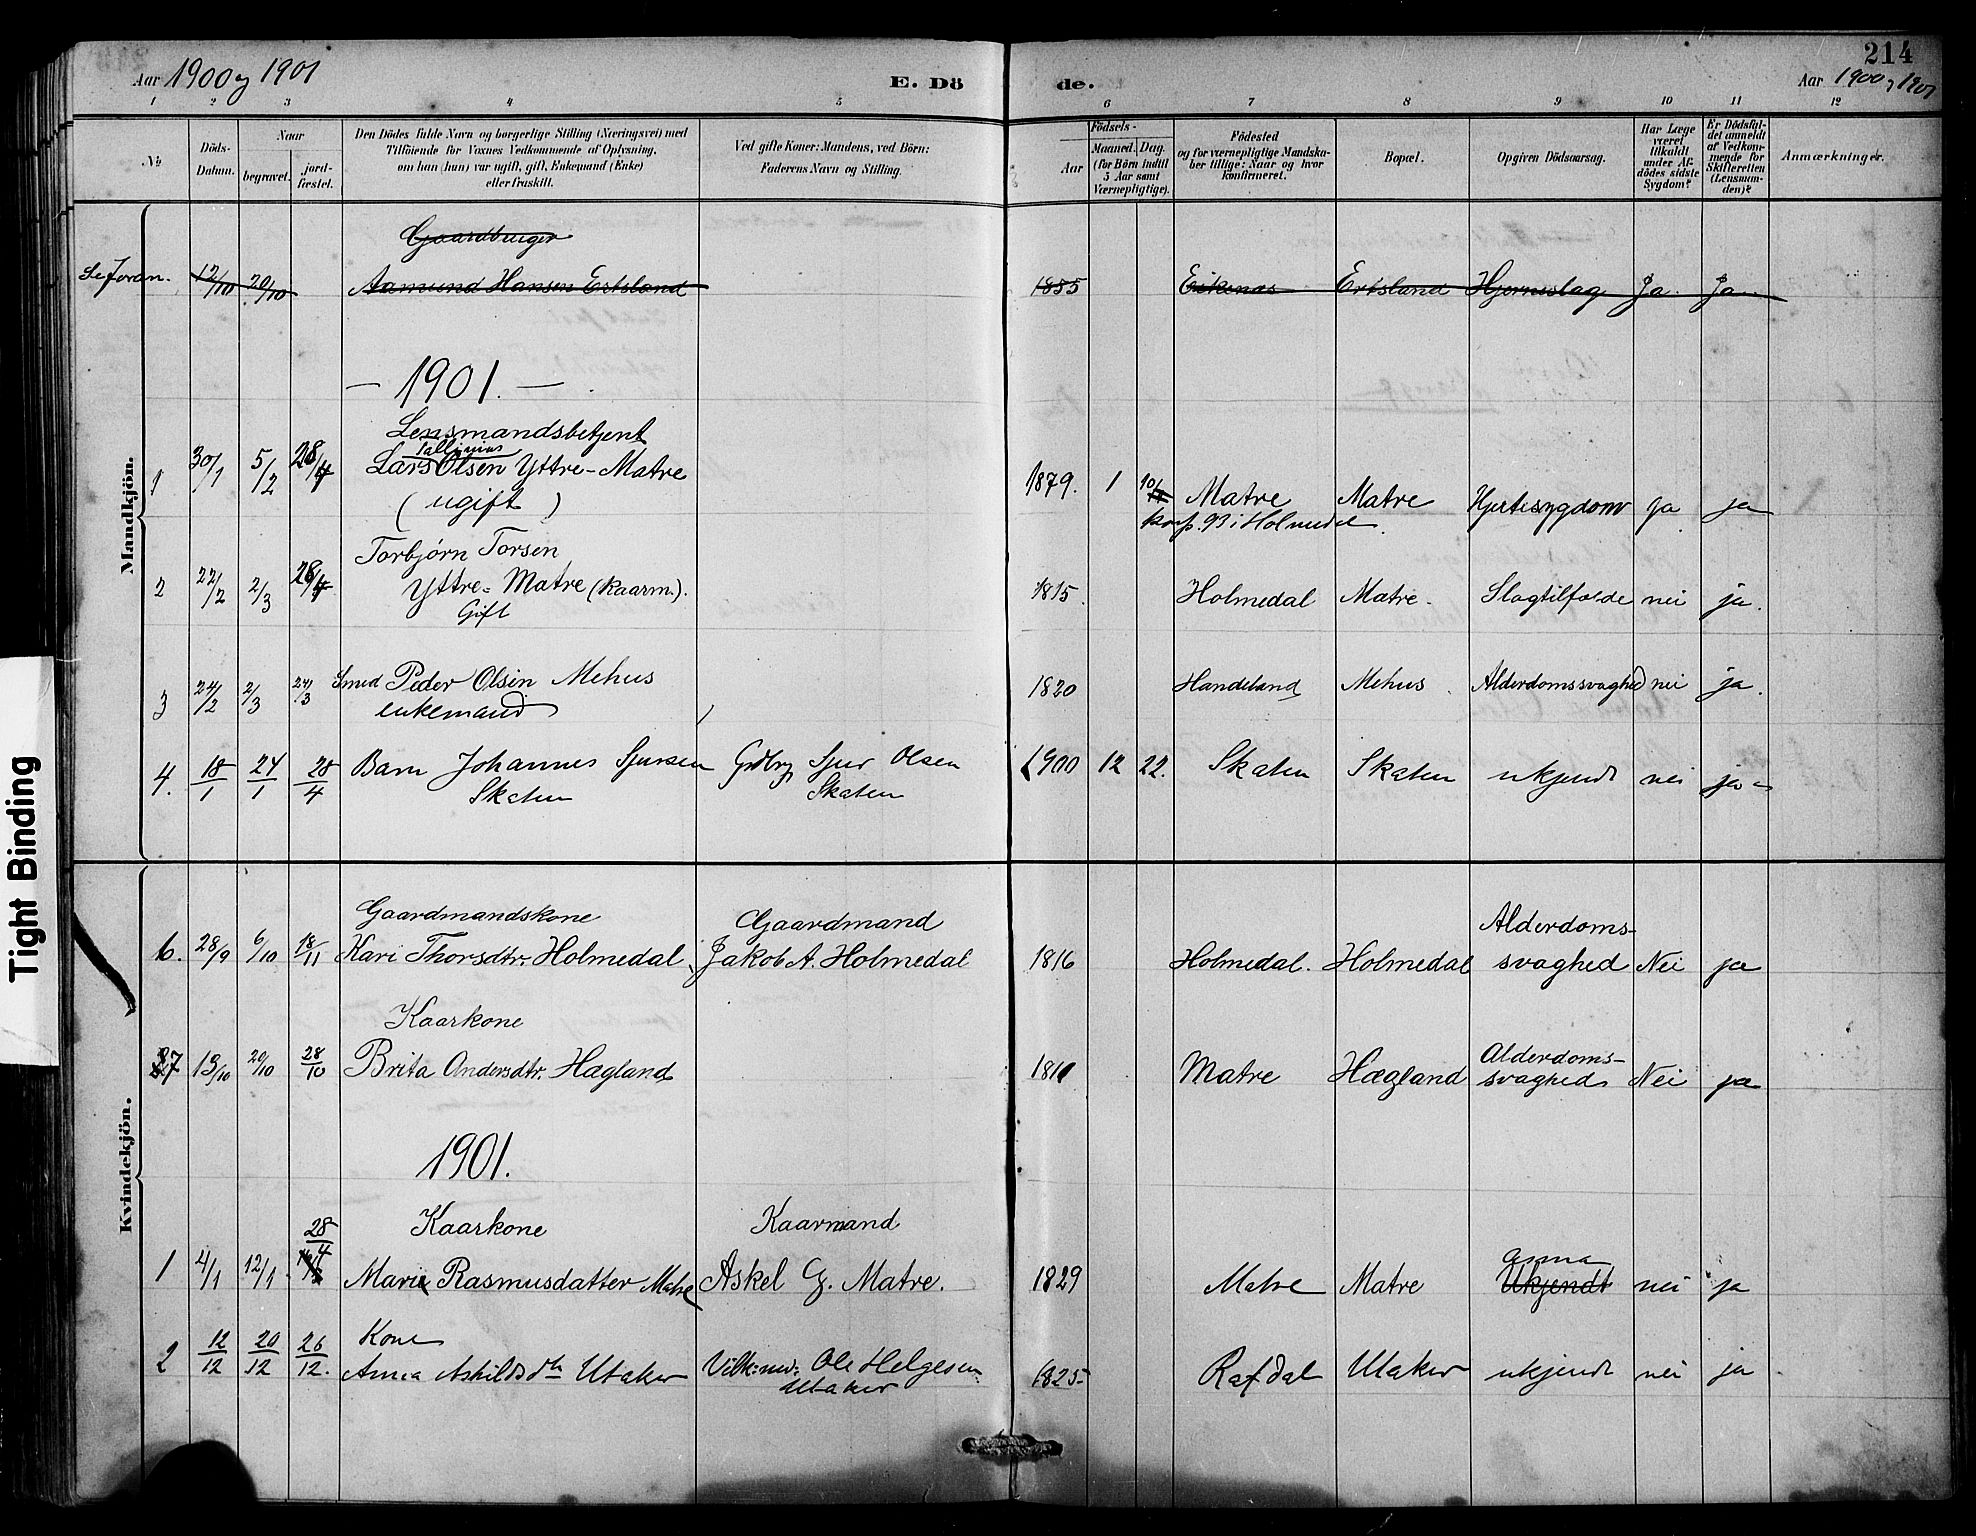 214
Aar 1900 og 1901
E. Dö
de.
Aar 1900 og 1901
1 2 3 4 5 6 7 8 9 10 11 12
No
Döds-Datum.
Naar
begravet.
jord-fæstet.
Den Dödes fulde Navn og borgerlige Stilling (Næringsvei) med
Tilföiende för Voxnes Vedkommende af Oplysning,
om han (hun) var ugift, gift, Enkemand (Enke)
eller fraskilt.
Ved gifte Koner: Mandens, ved Börn:
Faderens Navn og Stilling.
Födsels-
Aar
Maaned.
Dag.
(for Börn indtil
5 Aar samt
Værnepligtige).
Födested
og for værnepligtige Mandska-
ber tillige: Naar og hvor
konfirmeret.
Bopæl.
Opgiven Dödsaarsag.
Har Læge
været
tilkaldt
under Af-
dödes sidste
Sygdom?
Er Dödsfal-
det anmeldt
af Vedkom-
mende for
Skifteretten
(Lensman-
den)?
Anmærkninger.
Mandkjön.
Gaardbruger
Se foran. 12/10 20/10 Aamund Hansen Ertsland 1855 Eikenæs Ertsland Hjerneslag Ja. Ja
- 1901. -
Lensmandsbetjent
1 30/1 5/2 28/4 Lars Olsen Yttre-Matre 1879. 1 10 Matre Matre Hjertesygdom ja ja
(ugift) konf. 93 i Holmedal
Torbjørn Torsen
2 22/2 2/3 28/4 Yttre-Matre (Kaarm.). 1815. Holmedal Matre. Slagtilfælde nei ja.
Gift
3 24/2 2/3 24/3 Smed Peder Olsen Mehus 1820 Handeland Mehus Alderdomssvaghed nei ja.
enkemand
4. 18/1 24/1 28/4 Barn Johannes Sjursen Grdbrg Sjur Olsen 1900 12 22. Skaten Skaten ukjendt nei ja
Skaten Skaten
Kvindekjön.
Gaardmandskone Gaardmand Alderdoms-
6. 28/9 6/10 18/11 Kari Thorsdtr. Holmedal Jakob A. Holmedal 1816 Holmedal. Holmedal svaghed Nei ja
Kaarkone Alderdoms-
7 13/10 20/10 28/10 Brita Andersdtr. Hægland 1811 Matre Hægland svaghed Nei ja
1901.
28/4 Kaarkone Kaarmand asma
1 4/1 12/1 Mari Rasmusdatter Matre Askel G. Matre. 1829 Matre Matre Ukjendt nei ja
Kone
2 12/12 20/12 26/12. Anna Askildsdtr Utaker Ole Helgesen 1825 Rafdal Utaker ukjendt nei ja
Utaker
Tight Binding